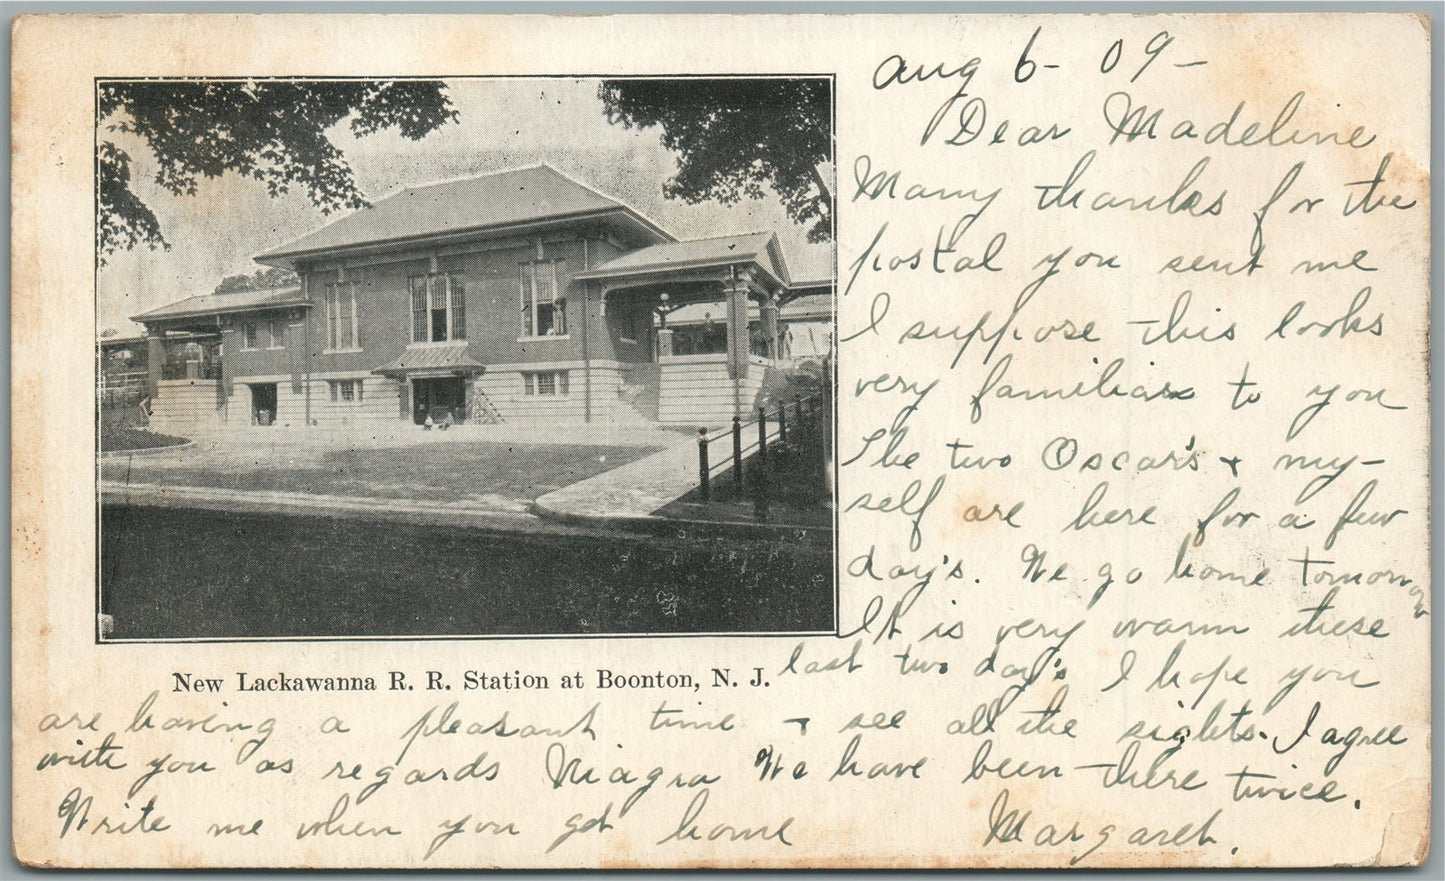 Aug 6 - 09 -
Dear Madeline
Many thanks for the
postal you sent me
I suppose this looks
very familiar to you
The two Oscar's + my-
self are here for a few
day's. We go home tomorrow
It is very warm these
last two day's I hope you
New Lackawanna R. R. Station at Boonton, N. J.
are having a pleasant time + see all the sights. I agree
with you as regards Niagra We have been there twice.
Write me when you get home Margaret.